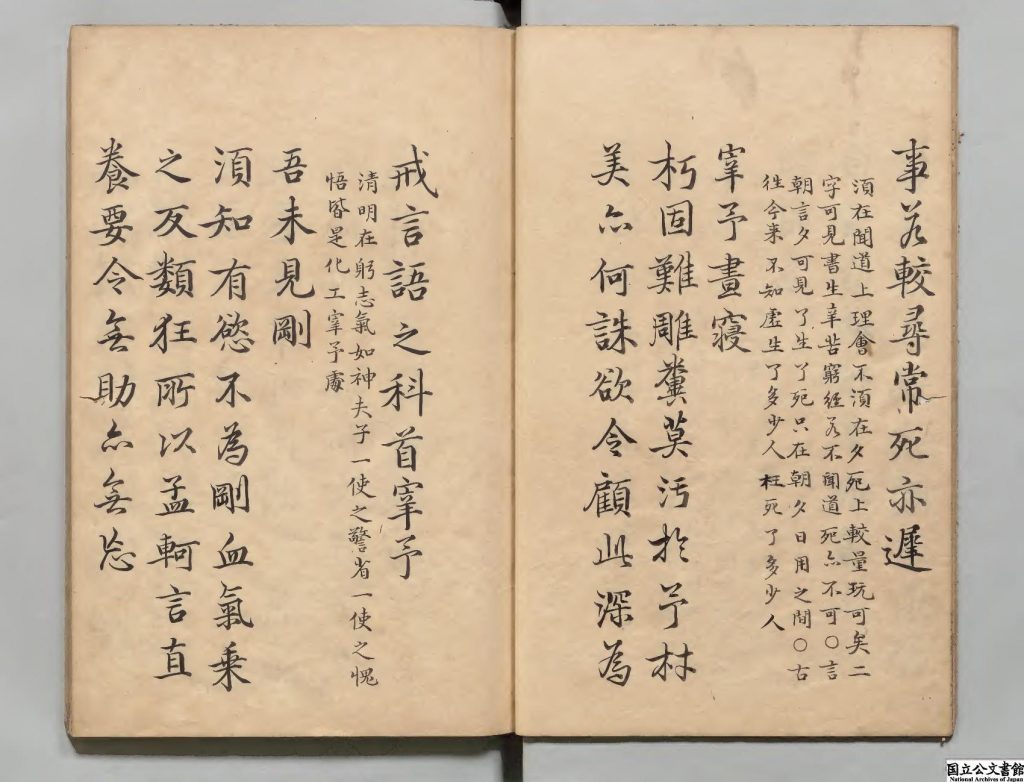 事若較尋常死亦遲
須在聞道上理會不須在夕死上較量玩可矣二
字可見書生辛苦窮經若不聞道死亦不可○言
朝言夕可見了生了死只在朝夕日用之間○古
徃今来不知虛生了多少人枉死了多少人
宰予晝寢
朽固難雕糞莫污於予材
美亦何誅欲令顧此深為
戒言語之科首宰予
清明在躬志氣如神夫子一使之警省一使之愧
悟皆是化工宰予處
吾未見剛
須知有慾不為剛血氣乗
之反類狂所以孟軻言直
養要令無助亦無忘
国立公文書館
National Archives of Japan